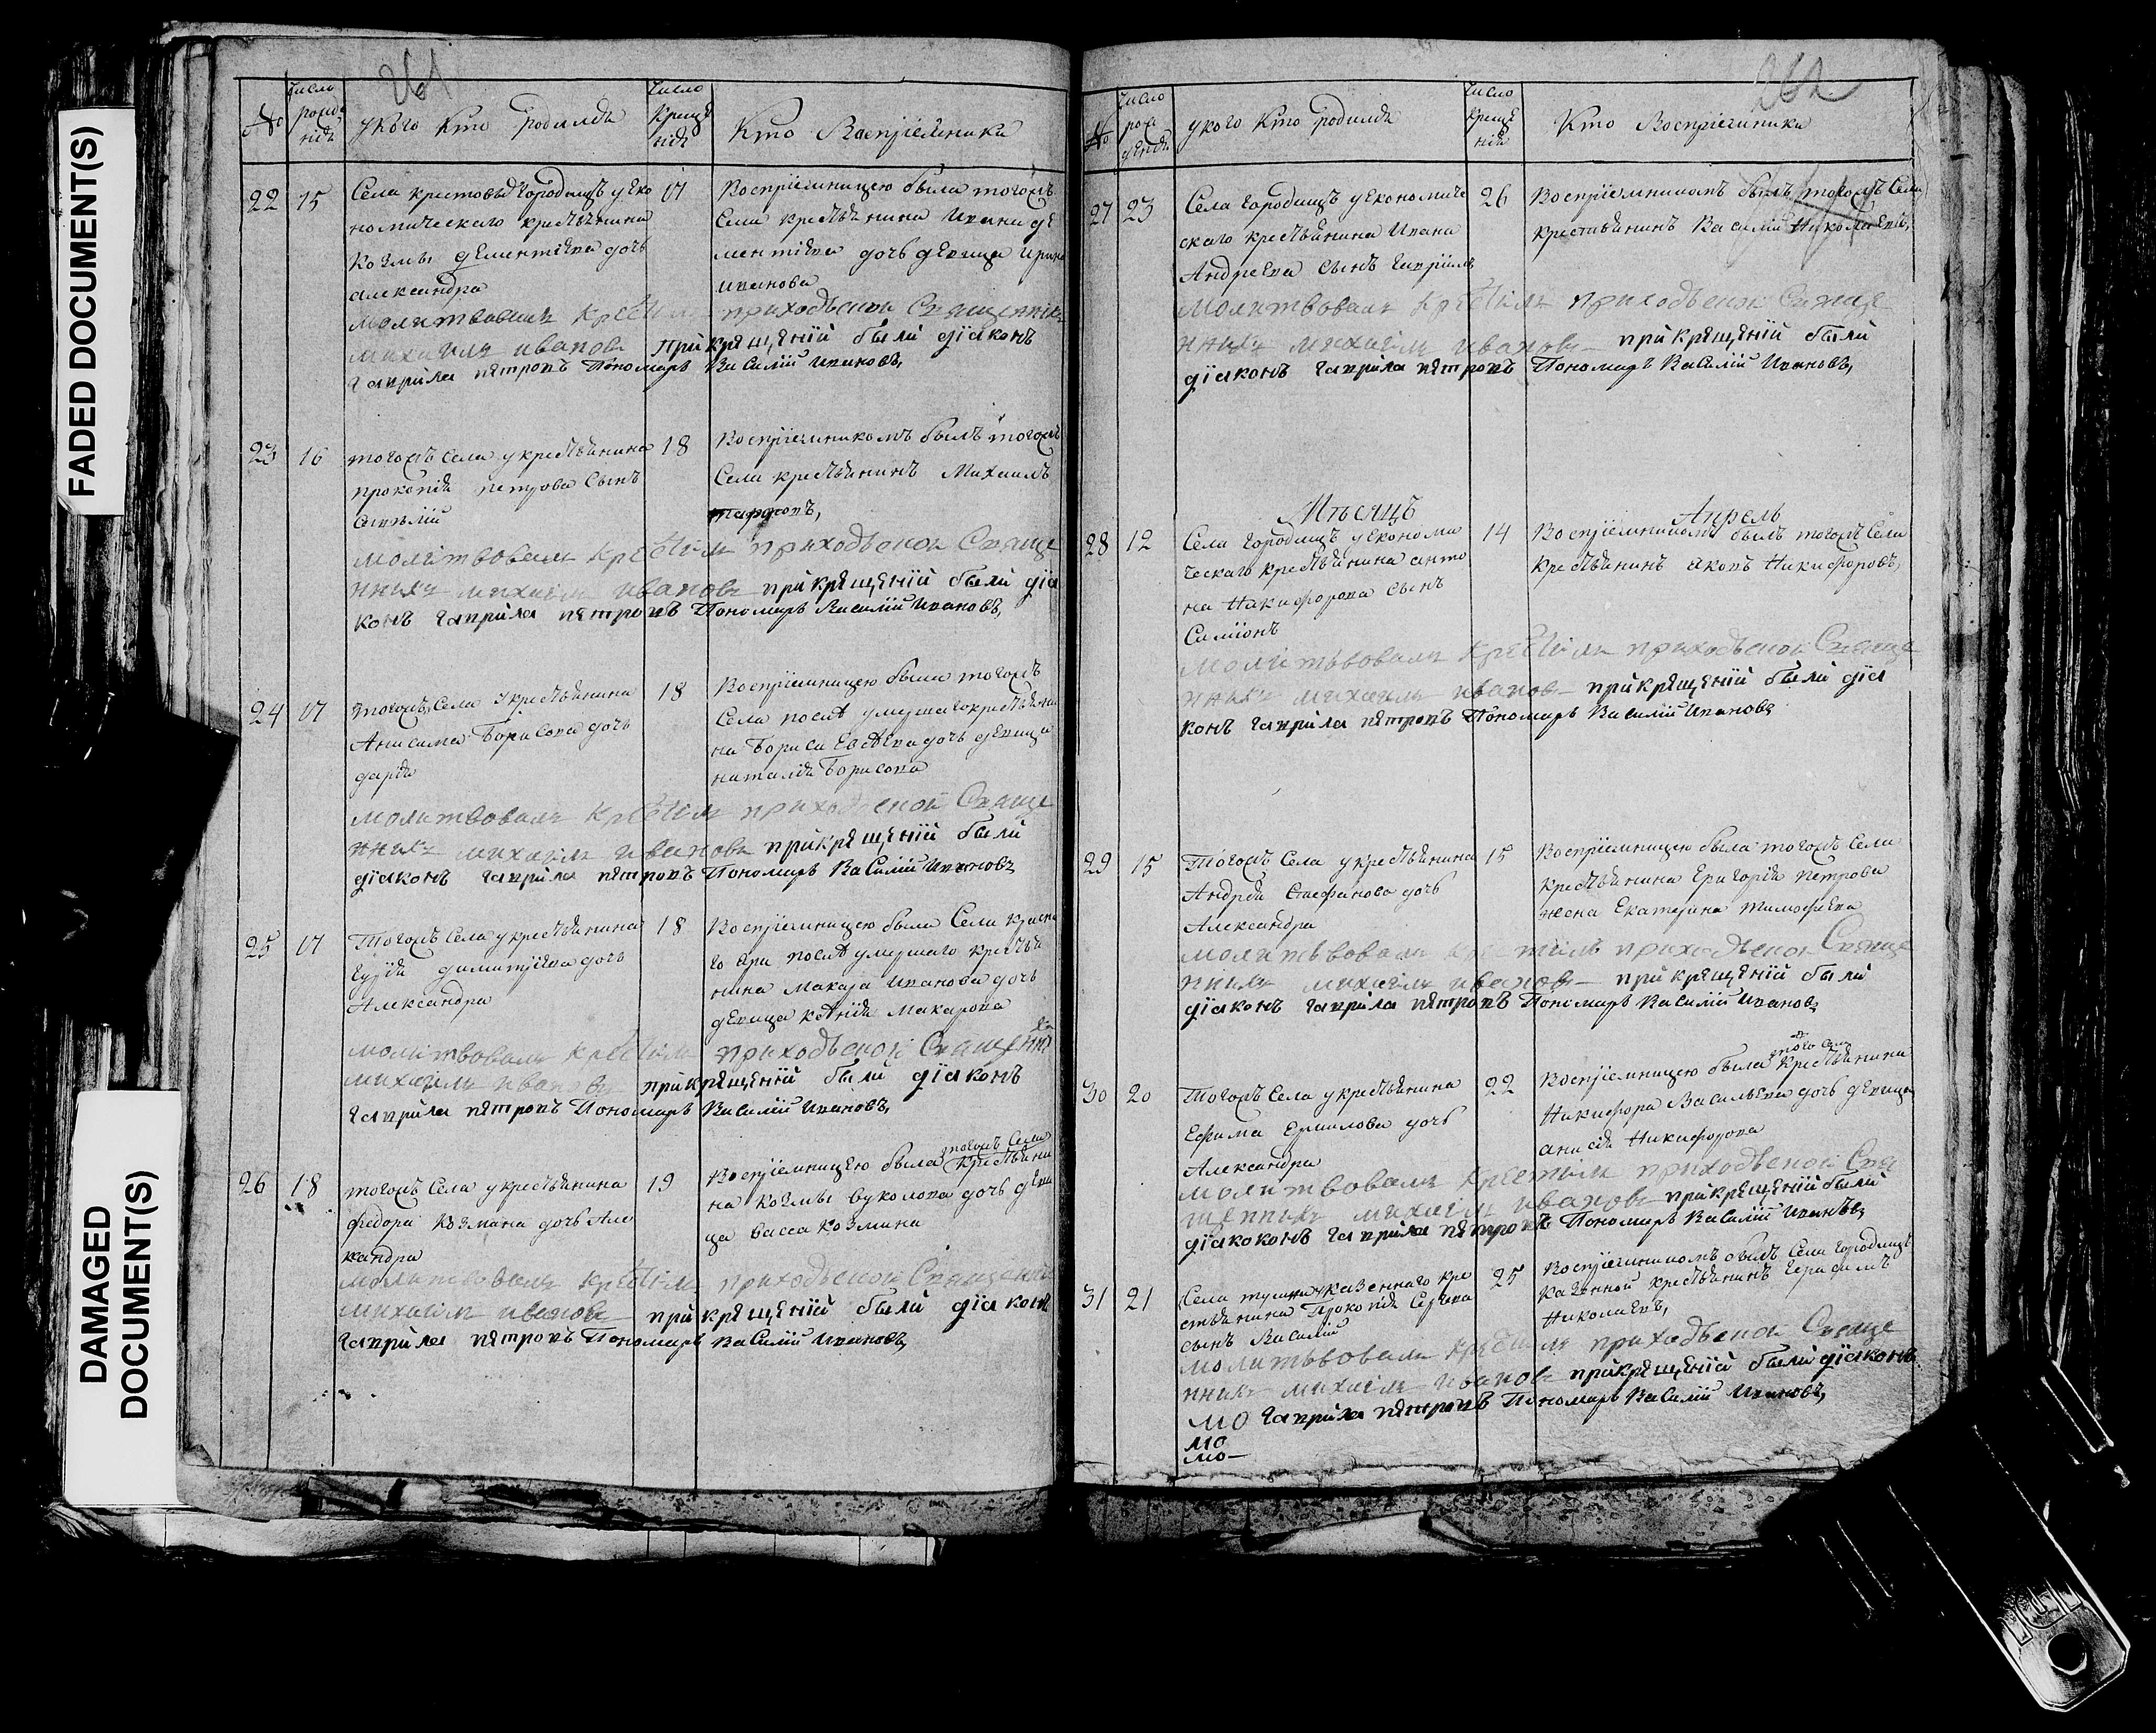 FADED DOCUMENT(S)
DAMAGED
DOCUMENT(S)
261
№
число рожденія
у кого кто родился
число крещенія
Кто Восприемники
22
15
Села крестовыхъ городищъ у Еко
номическаго крестьянина
Козмы Дементиева дочь
александра
17
Восприемницею была тогожъ
Села крестьянина Ивана де
ментиева дочь девица Ирина
иванова
молитвовалъ крестилъ приходской Священникъ
михаилъ ивановъ при крещении были дїаконъ
гаврила петровъ Пономарь Василий Ивановъ,
23
16
тогожъ Села у крестьянина
прокопия петрова Сынъ
18
Восприемникомъ былъ тогожъ
Села крестьянинъ Михаилъ
молитвовалъ крестилъ приходской Свяще
нникъ михаилъ ивановъ при крещении были дїа
конъ гаврила петровъ Пономарь Василий Ивановъ,
24
17
тогожъ Села у крестьянина
Анисима Борисова дочь
дарья
18
Восприемницею была тогожъ
Села после умершаго крестьяни
на Бориса дочь девица
наталия Борисова
молитвовалъ крестилъ приходской Свяще
нникъ михаилъ ивановъ при крещении были
дїаконъ гаврила петровъ Пономарь Василий Ивановъ
25
17
Тогожъ Села у крестьянина
гурия димитриева дочь
Александра
18
Восприемницею была Села красна
го яра после умершаго крестья
нина Макара Иванова дочь
девица ксения Макарова
молитвовалъ крестилъ приходской Священникъ
михаилъ ивановъ при крещении были дїаконъ
гаврила петровъ Пономарь Василий Ивановъ,
26
18
тогожъ Села у крестьянина
федора козмина дочь Але
ксандра
19
Восприемницею была тогожъ Села крестьяни
на козмы вуколова дочь деви
ца васса козмина
молитвовалъ крестилъ приходской Священникъ
михаилъ ивановъ при крещении были дїаконъ
гаврила петровъ Пономарь Василий Ивановъ
262
№
число рожденія
у кого кто родился
число крещенія
Кто Восприемники
27
23
Села городищъ у економиче
скаго крестьянина Ивана
Андреева Сынъ гаврiилъ
26
Восприемникомъ былъ тогожъ Села
крестьянинъ Василий Николаевъ,
молитвовалъ крестилъ приходской Свяще
нникъ михаилъ ивановъ при крещении были
дїаконъ гаврила петровъ Пономарь Василий Ивановъ,
Месяцъ Апрель
28
12
Села городищъ у економи
ческаго крестьянина анто
на Никифорова Сынъ
Симионъ
14
Восприемникомъ былъ тогожъ Села
крестьянинъ яковъ Никифоровъ,
молитьвовалъ крестилъ приходской Свяще
нникъ михаилъ ивановъ при крещении были дїа
конъ гаврила петровъ Пономарь Василий Ивановъ
29
15
Тогожъ Села у крестьянина
Андрея Стефанова дочь
Александра
15
Восприемницею была тогожъ Села
крестьянина Григория петрова
жена Екатерина тимофеева
молитьвовалъ крестилъ приходской Свяще
нникъ михаилъ ивановъ при крещении были
дїаконъ гаврила петровъ Пономарь Василий Ивановъ
30
20
Тогожъ Села у крестьянина
Ефима Ермилова дочь
Александра
22
Восприемницею была того Села крестьянина
Никифора Васильева дочь девица
анисия Никифорова
молитвовалъ крестилъ приходской Свя
щенникъ михаилъ ивановъ при крещении были
дїакоконъ гаврила петровъ Пономарь Василий Ивановъ
31
21
Села казеннаго кре
стьянина Прокопия Сергеева
сынъ Василий
25
Восприемникомъ былъ Села городищъ
казенной крестьянинъ герасимъ
Николаевъ,
молитьвовалъ крестилъ приходской Свяще
нникъ михаилъ ивановъ при крещении были дїаконъ
мо гаврила петровъ Пономарь Василий Ивановъ,
мо
мо-